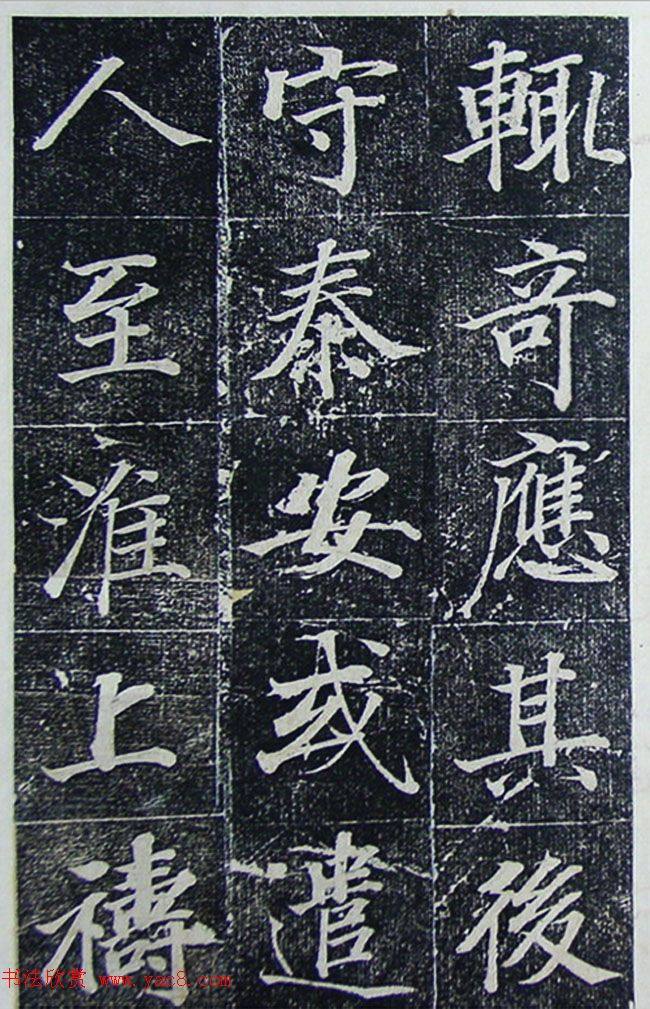 輙奇應其後
守泰安或遣
人至淮上禱
书法欣赏 www.yac8.com